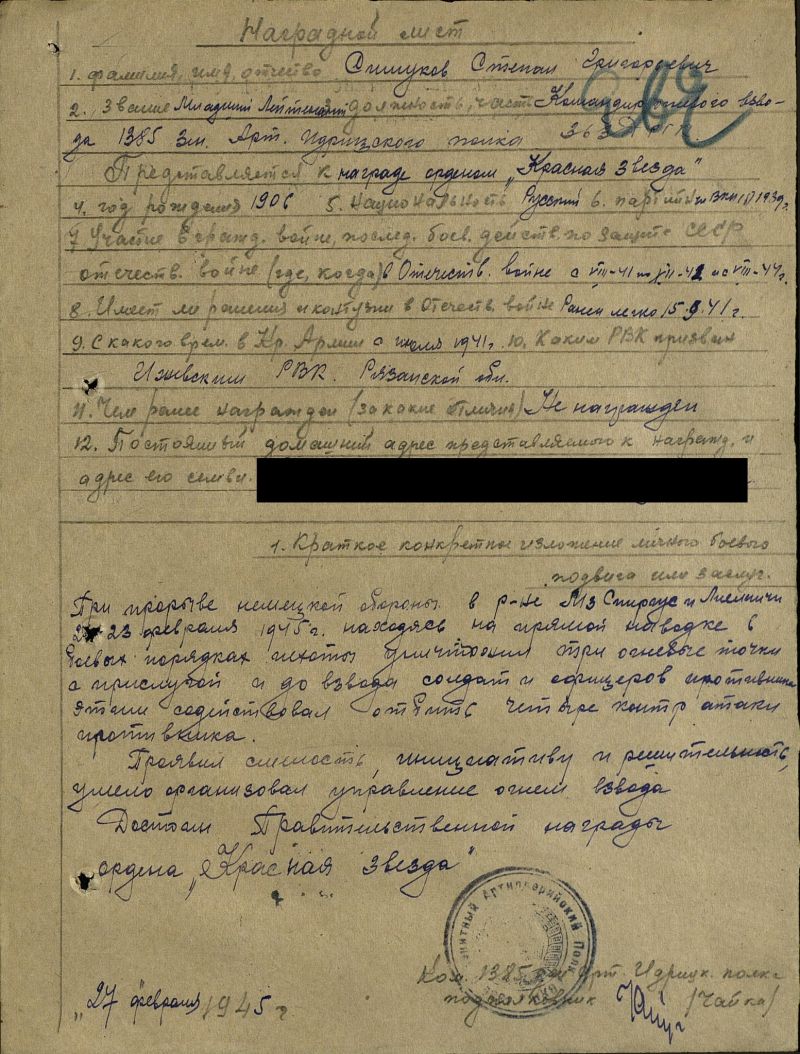 Наградной лист
1. фамилия, имя, отчество Симуков Степан Григорьевич
2. Звание Младший Лейтенант должность, часть Командир огневого взво-
да 1385 Зен. Арт. Идрицкого полка 363
Представляется к награде орденом „Красная Звезда"
4. год рождения 1906 5. Национальность Русский 6. партийн. ВКП(б) 1939г.
7. Участие в гражд. войне, послед. боев. действ. по защите СССР
отечеств. войне (где, когда) в Отечеств. войне с VIII-41 по XII-42 и с VIII-44г.
8. Имеет ли ранения и контузии в Отечеств. войне Ранен легко 15.9.41г.
9. С какого врем. в Кр. Армии с июля 1941г. 10. Каким РВК призван
Ижевским РВК. Рязанской обл.
11. Чем ранее награжден (за какие отличия) Не награжден
12. Постоянный домашний адрес представляемого к награжд. и
адрес его семьи.
1. Краткое конкретное изложение личного боевого
подвига или заслуг.
При прорыве немецкой обороны в р-не Мз Спиргус и Лиепничи
23 февраля 1945г. находясь на прямой наводке в
боевых порядках пехоты уничтожил три огневые точки
с прислугой и до взвода солдат и офицеров противника
этим содействовал отбить четыре контр атаки
противника.
Проявил смелость, инициативу и решительность,
умело организовал управление огнем взвода
Достоин Правительственной награды
ордена „Красная Звезда"
Зенитный Артиллерийский Полк
Ком. 1385 зен арт. Идрицк. полка
подполковник (Чайка)
„27 февраля 1945 г